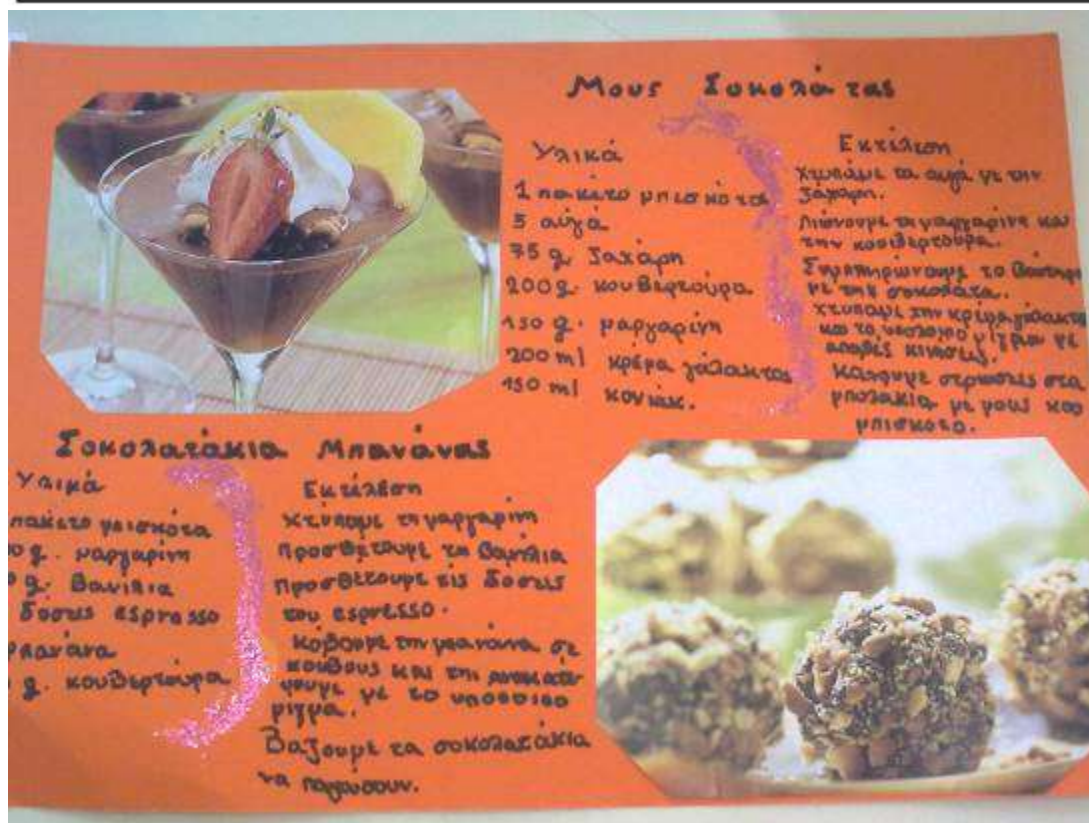 Μους Σοκολάτας
Υλικά
1 πακέτο μπισκότα
5 αυγά
75 g. ζαχάρη
200 g. κουβερτούρα
150 g. μαργαρίνη
200 ml κρέμα γάλακτος
150 ml κονιάκ.
Εκτέλεση
Χτυπάμε τα αυγά με την
ζάχαρη.
Λιώνουμε τη μαργαρίνη και
την κουβερτούρα.
το βούτυρο
με την σοκολάτα.
χτυπάμε την κρέμα γάλακτος
και το υπόλοιπο μίγμα με
απαλές κινήσεις.
στρώσεις στα
μπολάκια με μους και
μπισκότο.
Σοκολατάκια Μπανάνας
Υλικά
πακέτο μπισκότα
0 g. μαργαρίνη
0 g. Βανίλια
δόσεις espresso
μπανάνα
g. κουβερτούρα
Εκτέλεση
χτυπάμε τη μαργαρίνη
Προσθέτουμε τη βανίλια
Προσθέτουμε τις δόσεις
του espresso.
Κόβουμε την μπανάνα σε
κύβους και την
με το υπόλοιπο
μίγμα.
Βάζουμε τα σοκολατάκια
να παγώσουν.